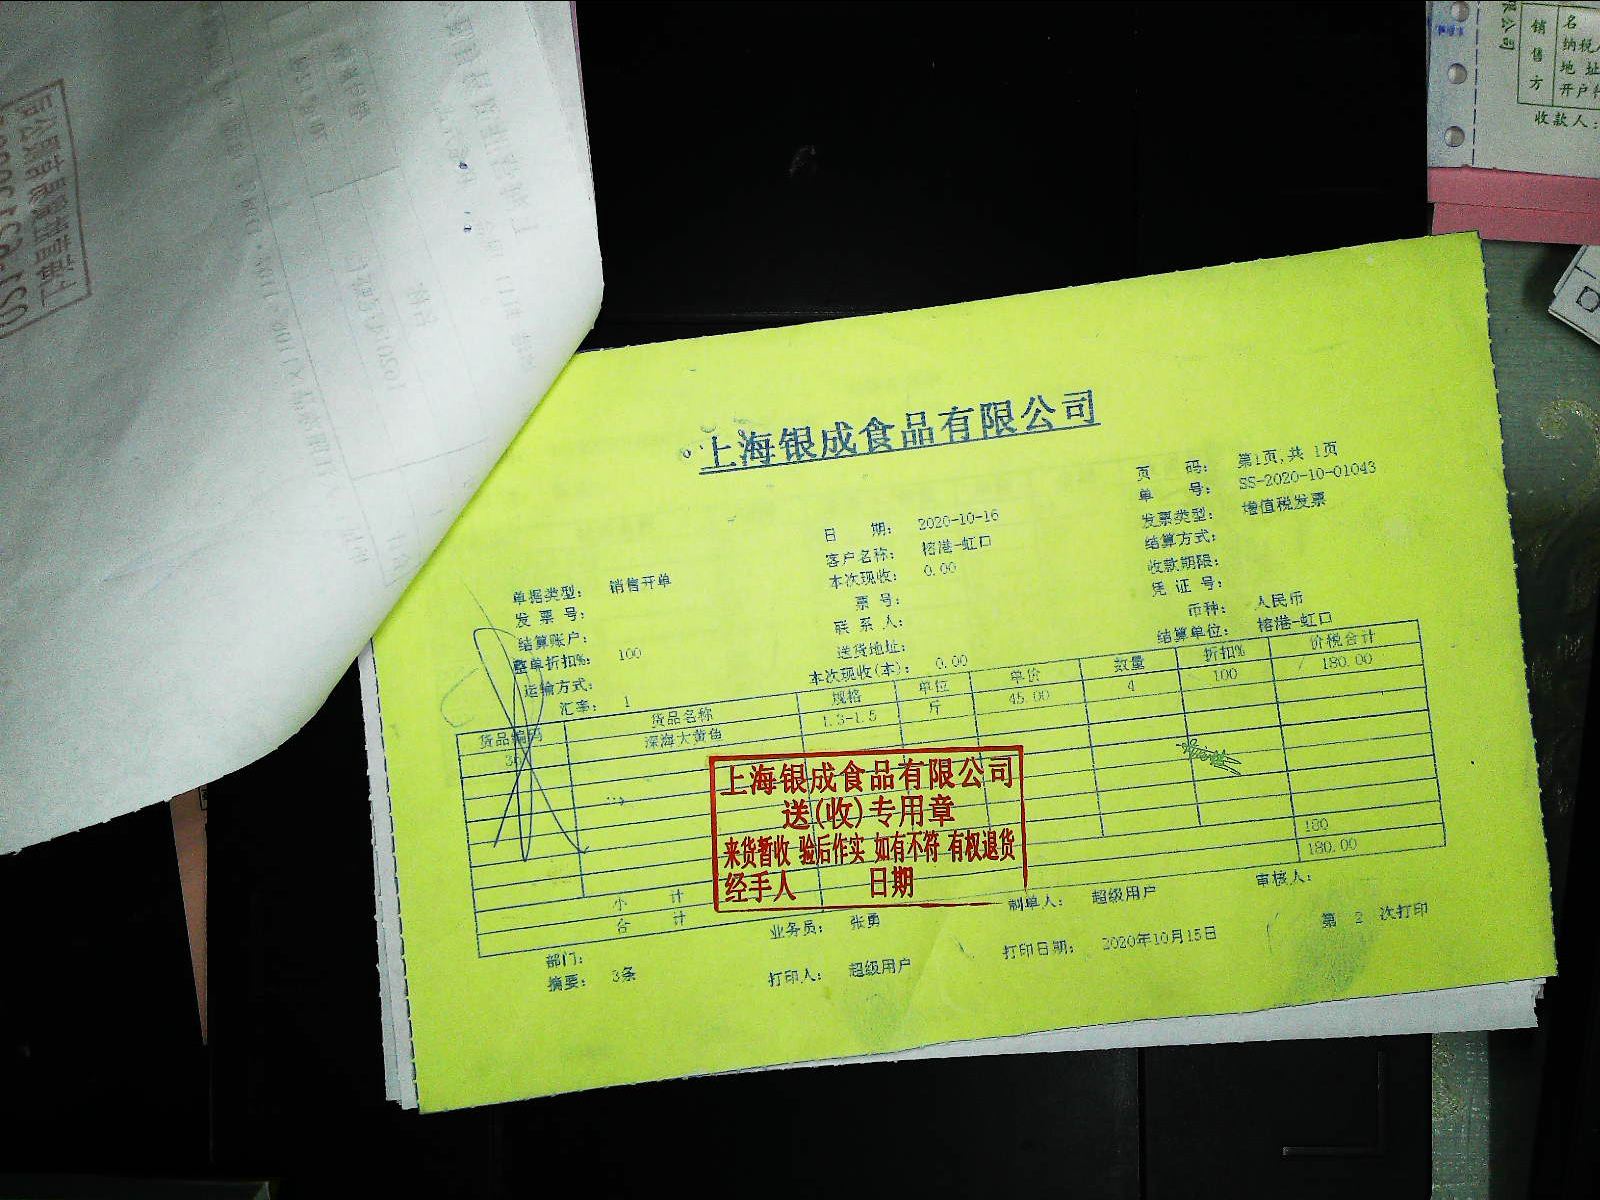 上海银成食品有限公司
页 码: 第1页,共 1页
单 号: SS-2020-10-01043
日 期: 2020-10-16
发票类型: 增值税发票
客户名称: 榕港-虹口
结算方式:
单据类型: 销售开单
本次现收: 0.00
收款期限:
发 票 号:
票 号:
凭 证 号:
结算账户:
联 系 人:
币种: 人民币
整单折扣%: 100
送货地址:
结算单位: 榕港-虹口
运输方式:
本次现收(本): 0.00
汇率: 1
货品编码 货品名称 规格 单位 单价 数量 折扣% 价税合计
深海大黄鱼 1.3-1.5 斤 45.00 4 100 180.00
上海银成食品有限公司
送(收)专用章
来货暂收 验后作实 如有不符 有权退货
经手人 日期
小 计 180
合 计 180.00
部门: 业务员: 张勇 制单人: 超级用户 审核人:
摘要: 3条 打印人: 超级用户 打印日期: 2020年10月15日 第 2 次打印
销售方
名
纳税人
地 址
开户行
收款人:
限公司